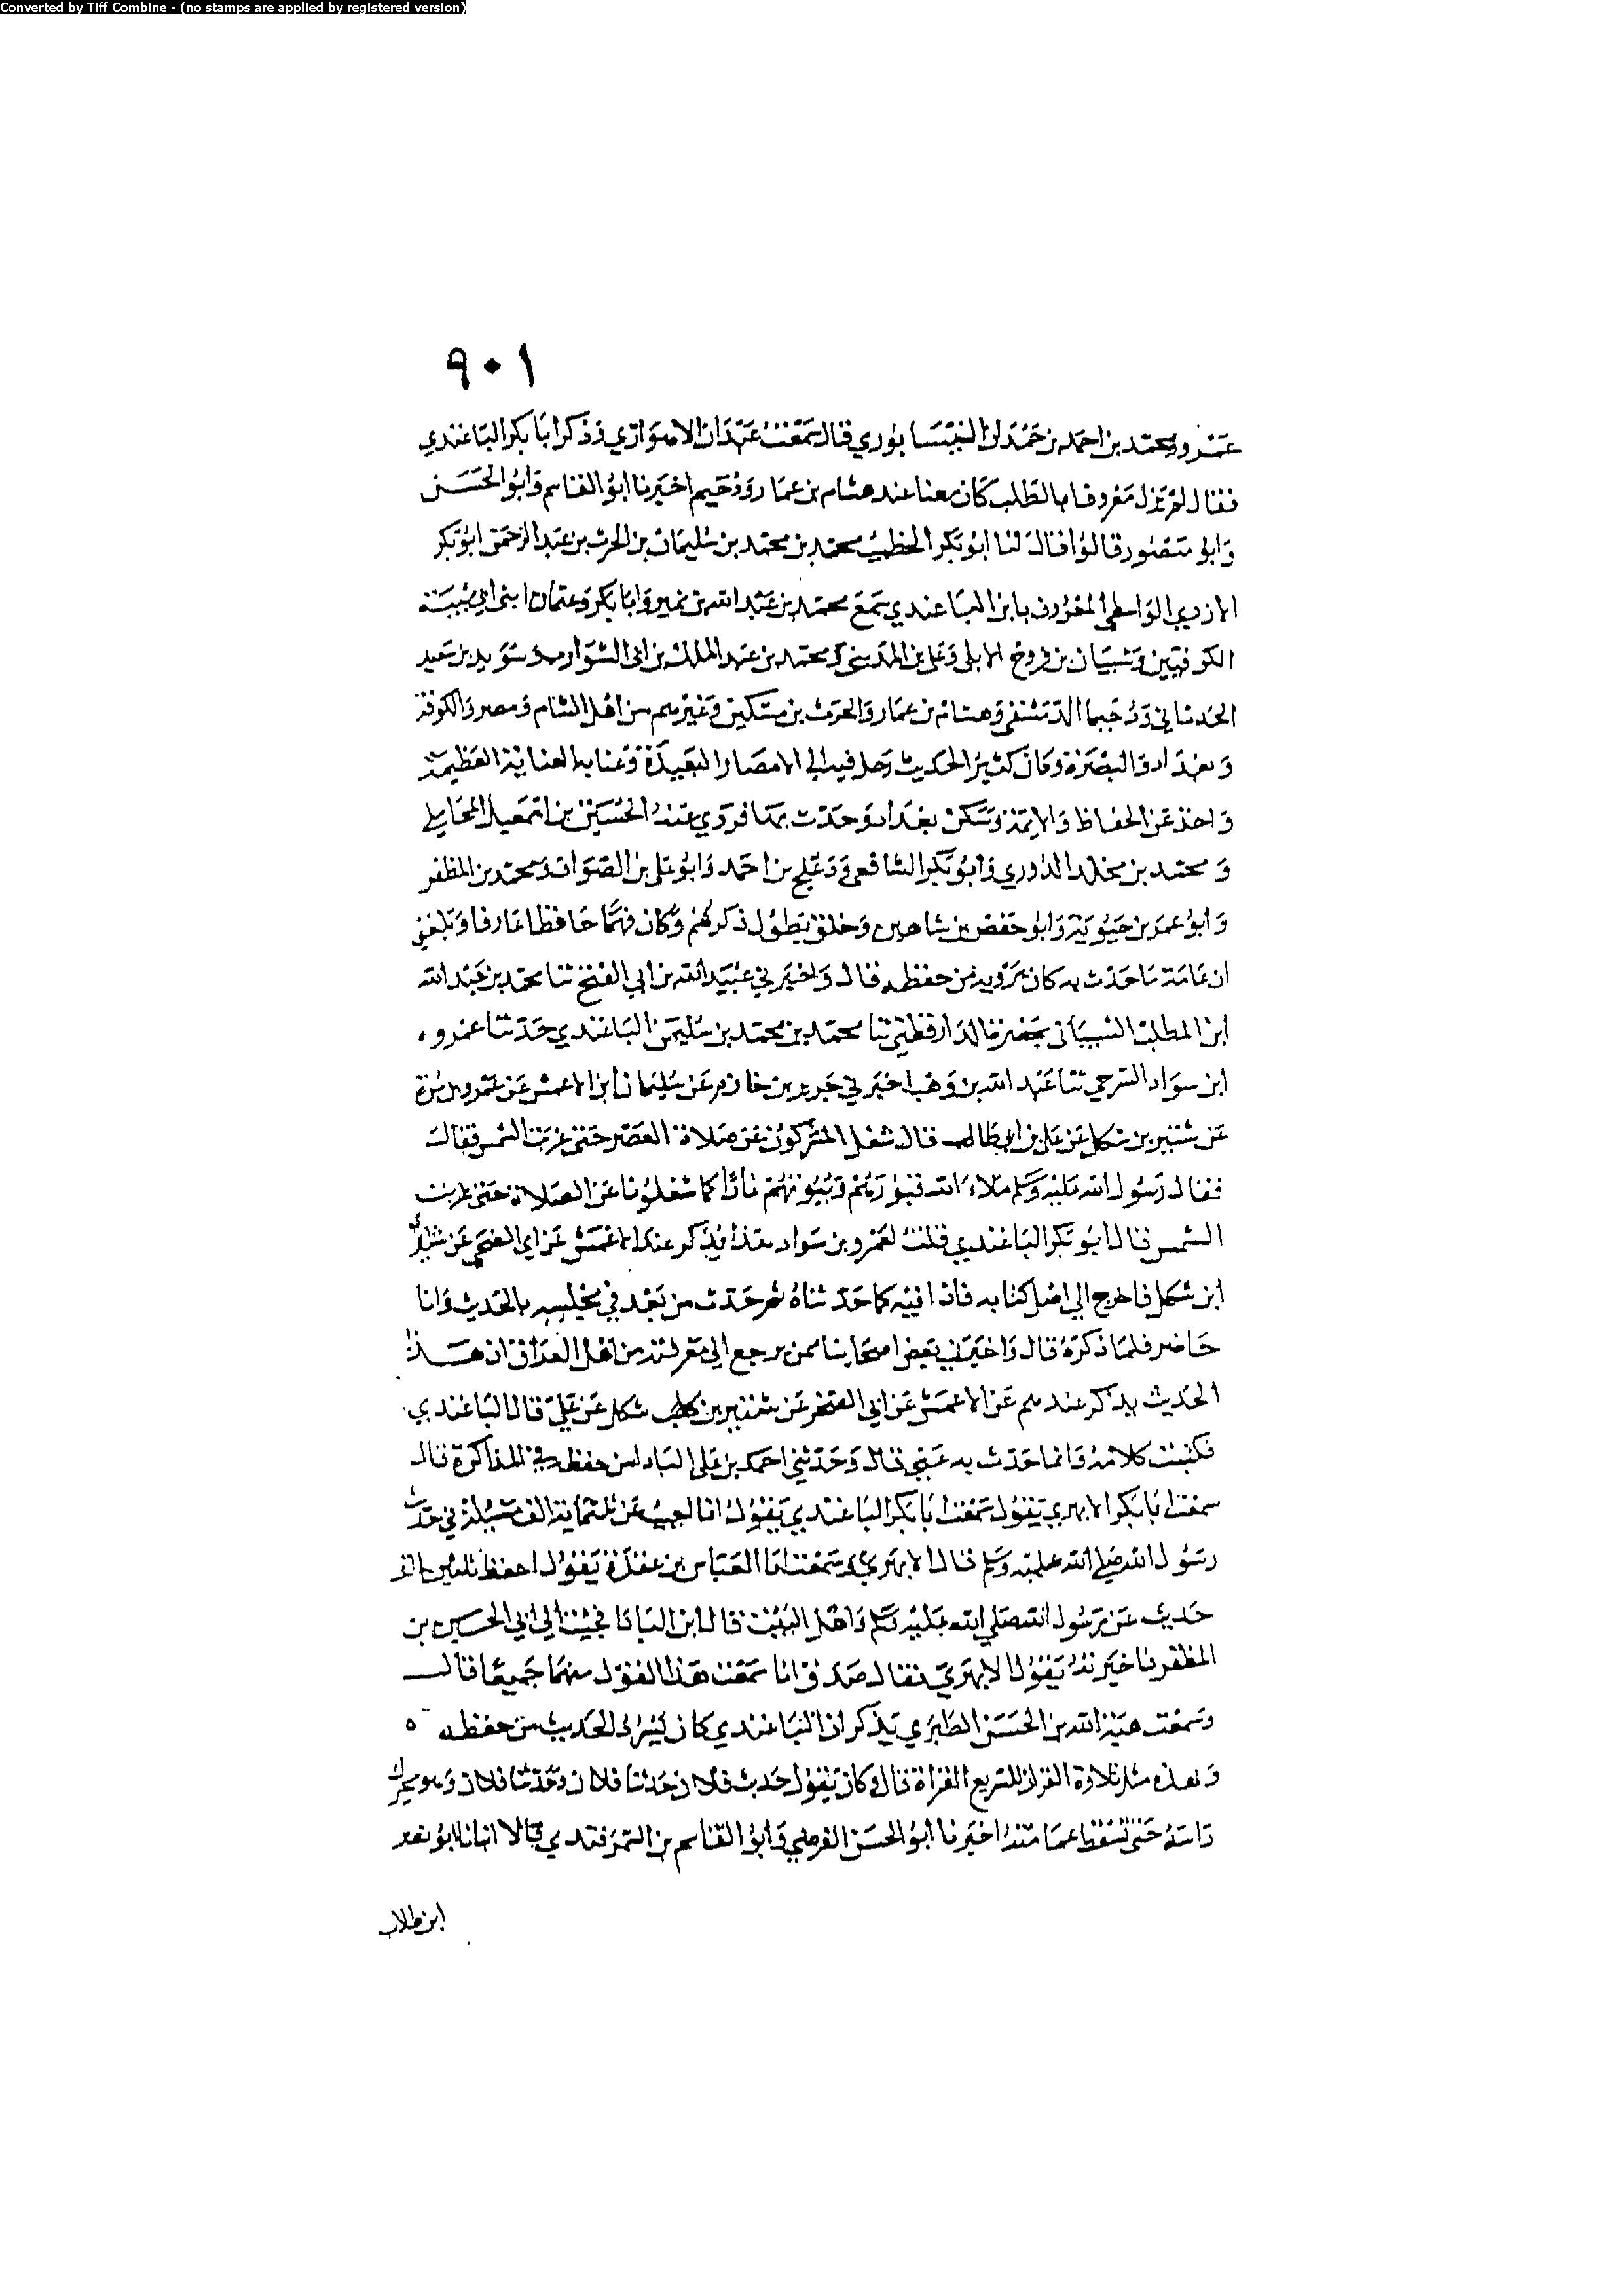 Converted by Tiff Combine - (no stamps are applied by registered version)
٩٠١
عمرو محمد بن احمد بن حمدان النيسابوري قال سمعت عبدان الاهوازي وذكر ابا بكر الباغندي
فقال لم يزل معروفا بالطلب كان معنا عند هشام بن عمار ودحيم اخبرنا ابو القاسم وابو الحسن
وابو منصور قالوا قال لنا ابو بكر الخطيب محمد بن محمد بن سليمان بن الحرث بن عبد الرحمن ابو بكر
الازدي الواسطي المعروف بابن الباغندي سمع محمد بن عبد الله بن نمير وابا بكر وعثمان ابني ابي شيبة
الكوفيين وشيبان بن فروخ الابلي وعلي بن المديني ومحمد بن عبد الملك بن ابي الشوارب وسويد بن سعيد
الحدثاني ودحيما الدمشقي وهشام بن عمار والحرث بن مسكين وغيرهم من اهل الشام ومصر والكوفة
وبغداد والبصرة وكان كثير الحديث رحل فيه الى الامصار البعيدة وعنا به العناية العظيمة
واخذ عن الحفاظ والايمة وسكن بغداد وحدث بها فروي عنه الحسين بن اسمعيل المحاملي
ومحمد بن مخلد الدوري وابو بكر الشافعي ودعلج بن احمد وابو علي بن الصواف ومحمد بن المظفر
وابو عمر بن حيويه وابو حفص بن شاهين وخلق يطول ذكرهم وكان فهما حافظا عارفا وبلغني
ان عامة ما حدث به كان يرويه من حفظه قال واخبرني عبيد الله بن ابي الفتح ثنا محمد بن عبد الله
ابن المطلب الشيباني بحضرة الدارقطني ثنا محمد بن محمد بن سليمن الباغندي حدثنا عمرو
ابن سواد السرحي ثنا عبد الله بن وهب اخبرني جرير بن حازم عن سليمان الاعمش عن عمرو بن مرة
عن شتير بن شكل عن علي بن ابي طالب قال شغل المشركون عن صلاة العصر حتى غربت الشمس فقال
فقال رسول الله عليه وسلم ملاء الله قبورهم وبيوتهم نارا كما شغلونا عن الصلاة حتى غربت
الشمس قال ابو بكر الباغندي قلت لعمرو بن سواد هذا يذكر عند الاعمش عن ابي الضحى عن شتير
ابن شكل فاخرج الي اصل كتابه فاذا فيه كما حدثناه ثم حدث من بعد في مجلسه بالحديث وانا
حاضر فلما ذكره قال واخبرني بعض اصحابنا ممن يرجع الى معرفته من اهل العراق ان هذا
الحديث يذكر عندهم عن الاعمش عن ابي الضحى عن شتير بن شكل عن علي قال الباغندي
فكتبت كلامه وانما حدث به عني قال وحدثني احمد بن علي البادا من حفظه في المذاكرة قال
سمعت ابا بكر الابهري يقول سمعت ابا بكر الباغندي يقول انا اجيب عن ثلثماية الف مسئلة في حديث
رسول الله صلى الله عليه وسلم قال الابهري وسمعت ابا العباس بن عقدة يقول احفظ ثلثين الف
حديث عن رسول الله صلى الله عليه وسلم واهل البيت قال ابن البادا فجئت الى ابي الحسين بن
المظفر فاخبرته يقول الابهري فقال صدق انا سمعت هذا القول منهما جميعا قال
وسمعت هبة الله بن الحسن الطبري يذكر ان الباغندي كان يسرد الحديث من حفظه ه
ويهذه مثل تلاوة القران للسريع القراة قال وكان يقول حدث فلان حدثنا فلان وحدثنا فلان وهو يحرك
راسه حتى تسقط عمامته اخبرنا ابو الحسن الفرضي وابو القاسم بن السمرقندي قالا انبانا ابو نصر
ابن طلاب